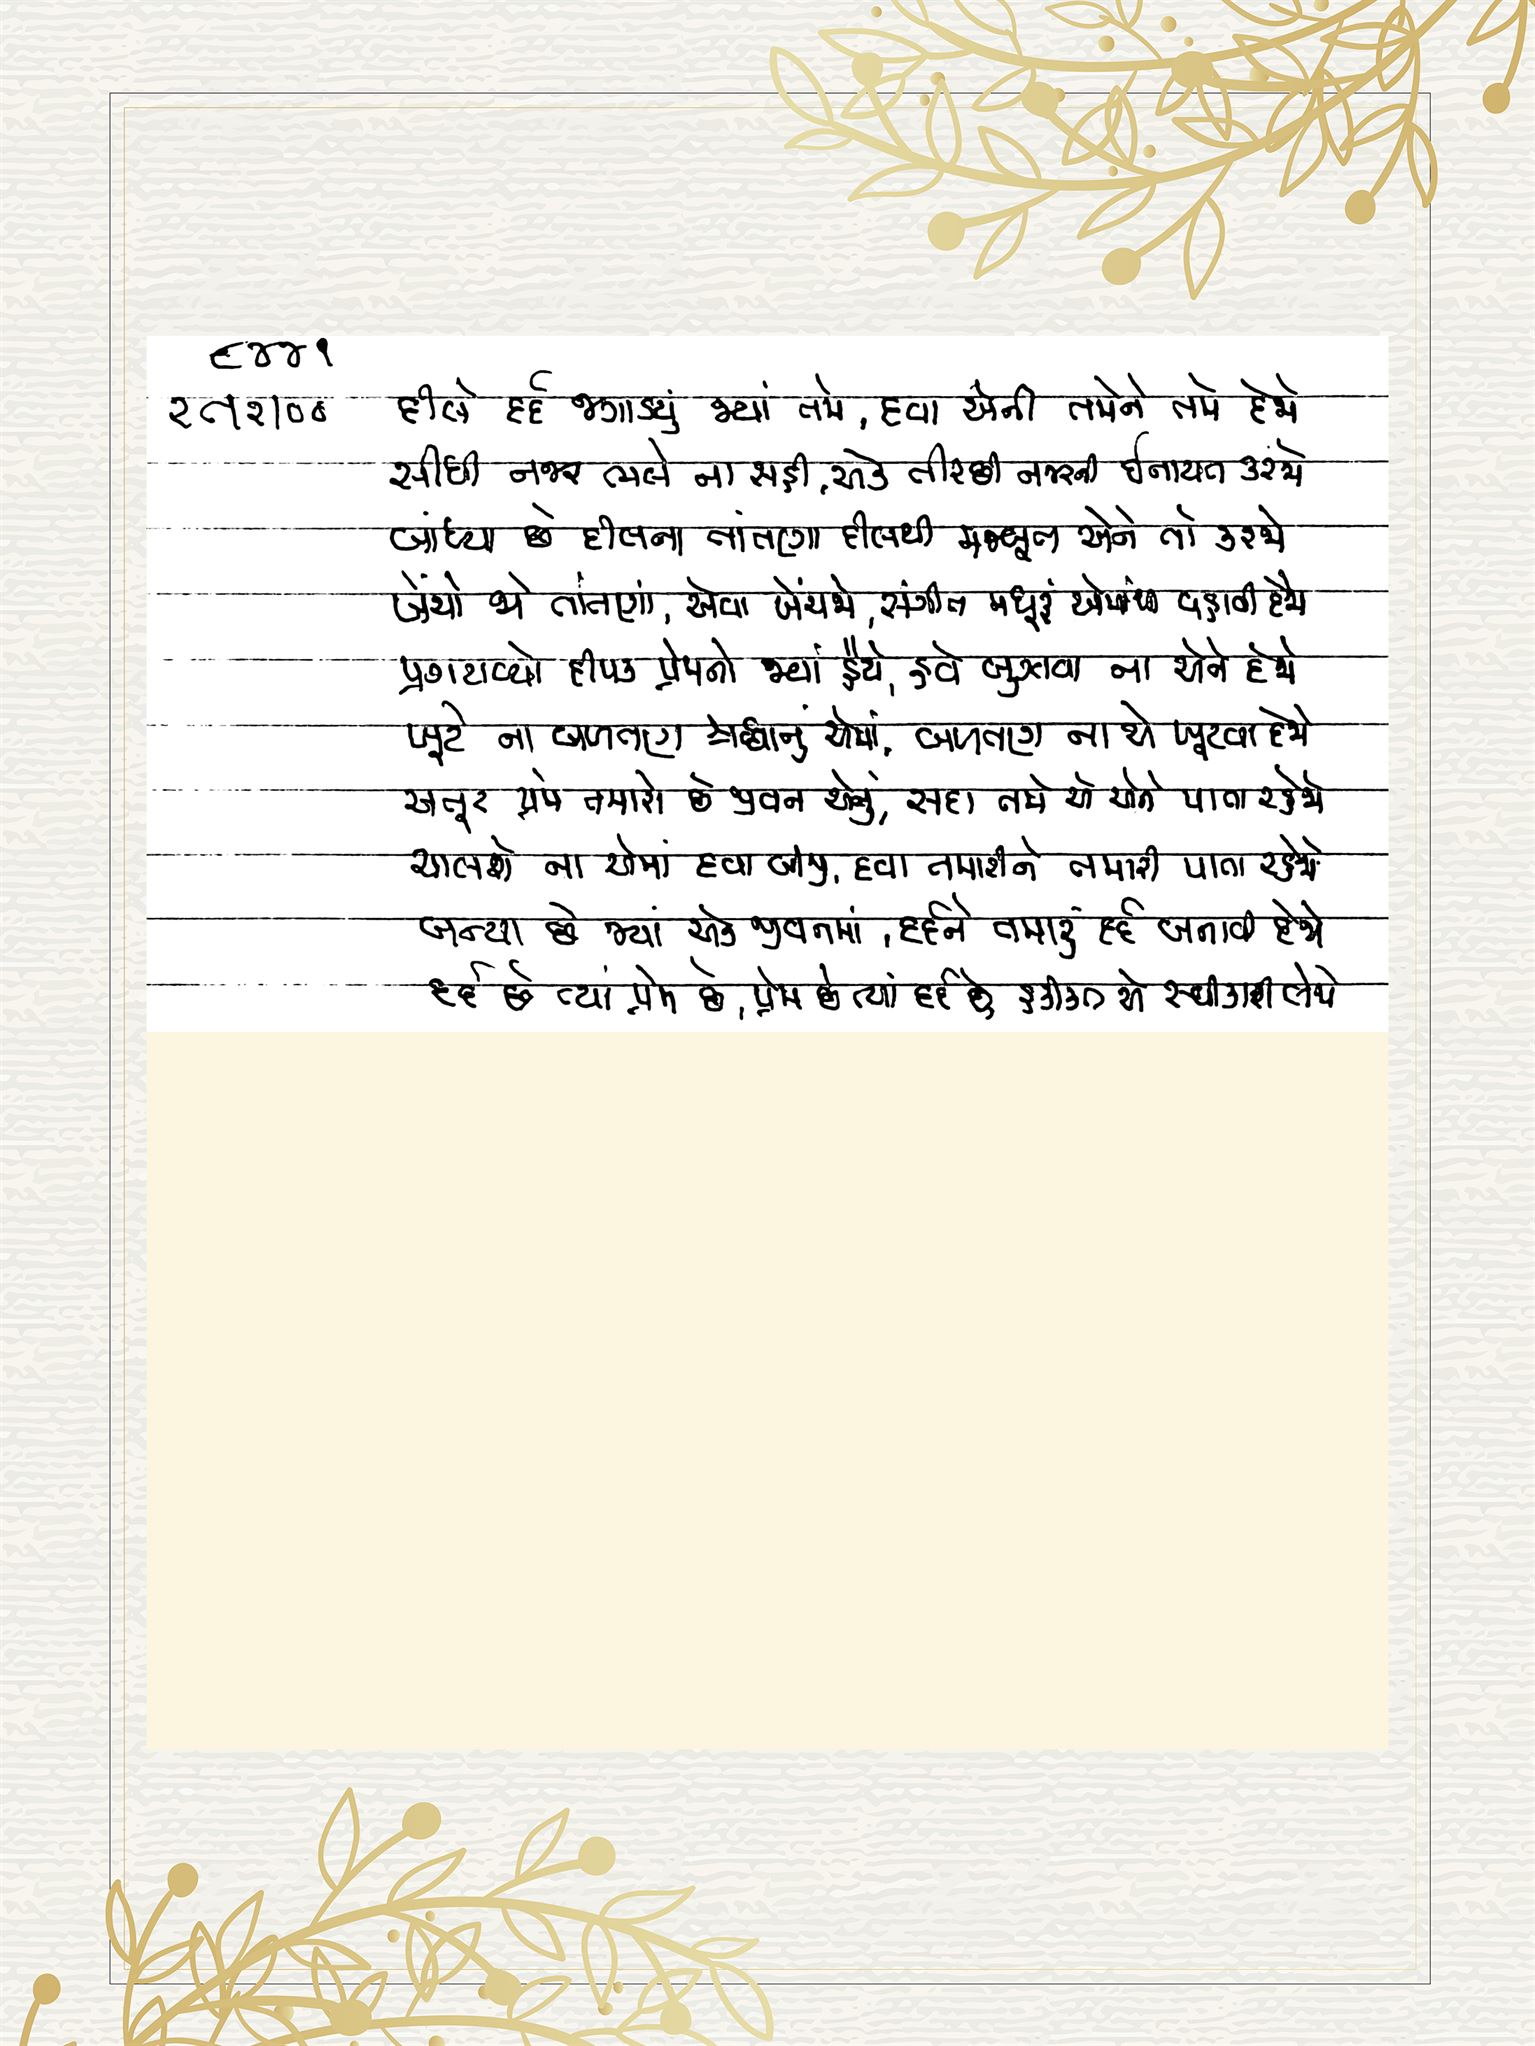 ૯૪૪૧
દીલે દર્દ જગાડયું જ્યાં તમે, દવા એની તમેને તમે દેજો
સીધી નજર ભલે ના સહી, એક તીરછી નજરની ઈનાયત કરજો
બાંધ્યા છે દીલના તાંતણા દીલથી મજબૂત એને તો કરજો
ખેંચો જો તાંતણાં, એવા ખેંચજો, સંગીત મધૂરું એમાંથી વહાવી દેજો
પ્રગટાવ્યો દીપક પ્રેમનો જ્યાં હૈયે, હવે બુઝાવા ના એને દેજો
ખૂટે ના બળતણ શ્રદ્ધાનું એમાં, બળતણ ના એ ખૂટવા દેજો
અતૂટ પ્રેમ તમારો છે જીવન એનું, સદા તમે એ એને પાતા રહેજો
ચાલશે ના એમાં દવા બીજી, દવા તમારીને તમારી પાતા રહેજો
બન્યા છે જ્યાં એક જીવનમાં, દર્દને તમારું દર્દ બનાવી દેજો
દર્દ છે ત્યાં પ્રેમ છે, પ્રેમ છે ત્યાં દર્દ છે હકીકત એ સ્વીકારી લેજો